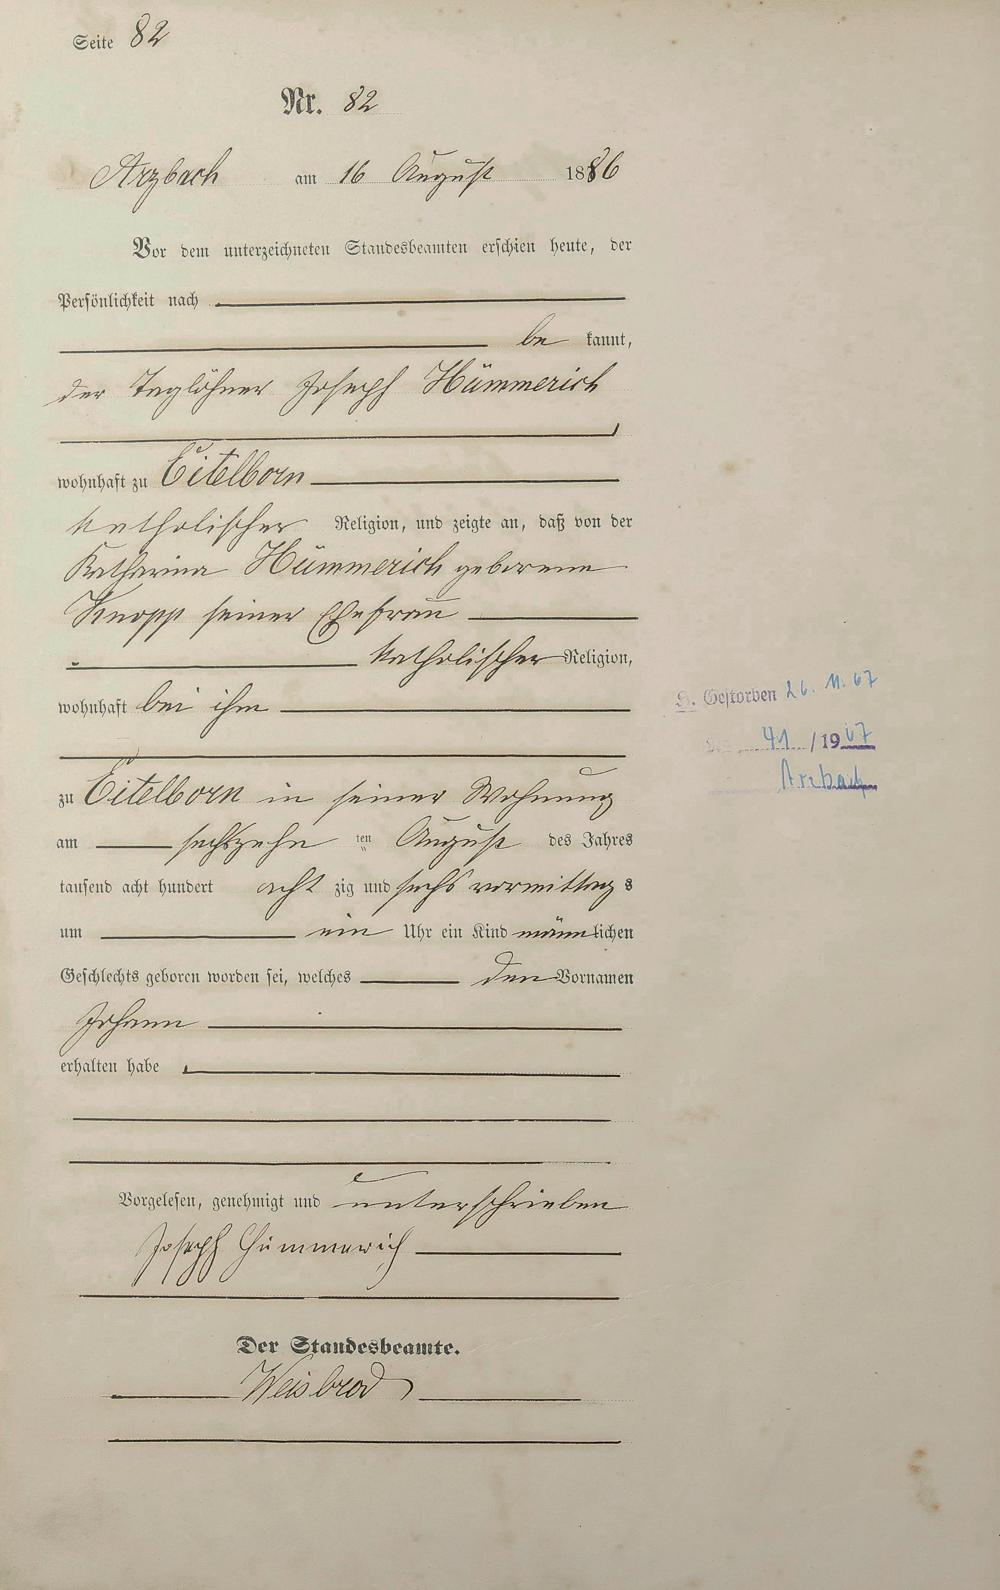 Seite 82
Nr. 82
Arzbach am 16 August 1886
Vor dem unterzeichneten Standesbeamten erschien heute, der
Persönlichkeit nach
be kannt,
der Taglöhner Joseph Hümmerich
,
wohnhaft zu Eitelborn
katholischer Religion, und zeigte an, daß von der
Katharina Hümmerich geborene
Knopp seiner Ehefrau
katholischer Religion,
wohnhaft bei ihm
S. Gestorben 26. 11. 67
41 / 1967
Arzbach
zu Eitelborn in seiner Wohnung
am sechszehn ten August des Jahres
tausend acht hundert acht zig und sechs vormittag s
um ein Uhr ein Kind männlichen
Geschlechts geboren worden sei, welches den Vornamen
Johann
erhalten habe
Vorgelesen, genehmigt und unterschrieben
Joseph Hümmerich
Der Standesbeamte.
Weisbrod